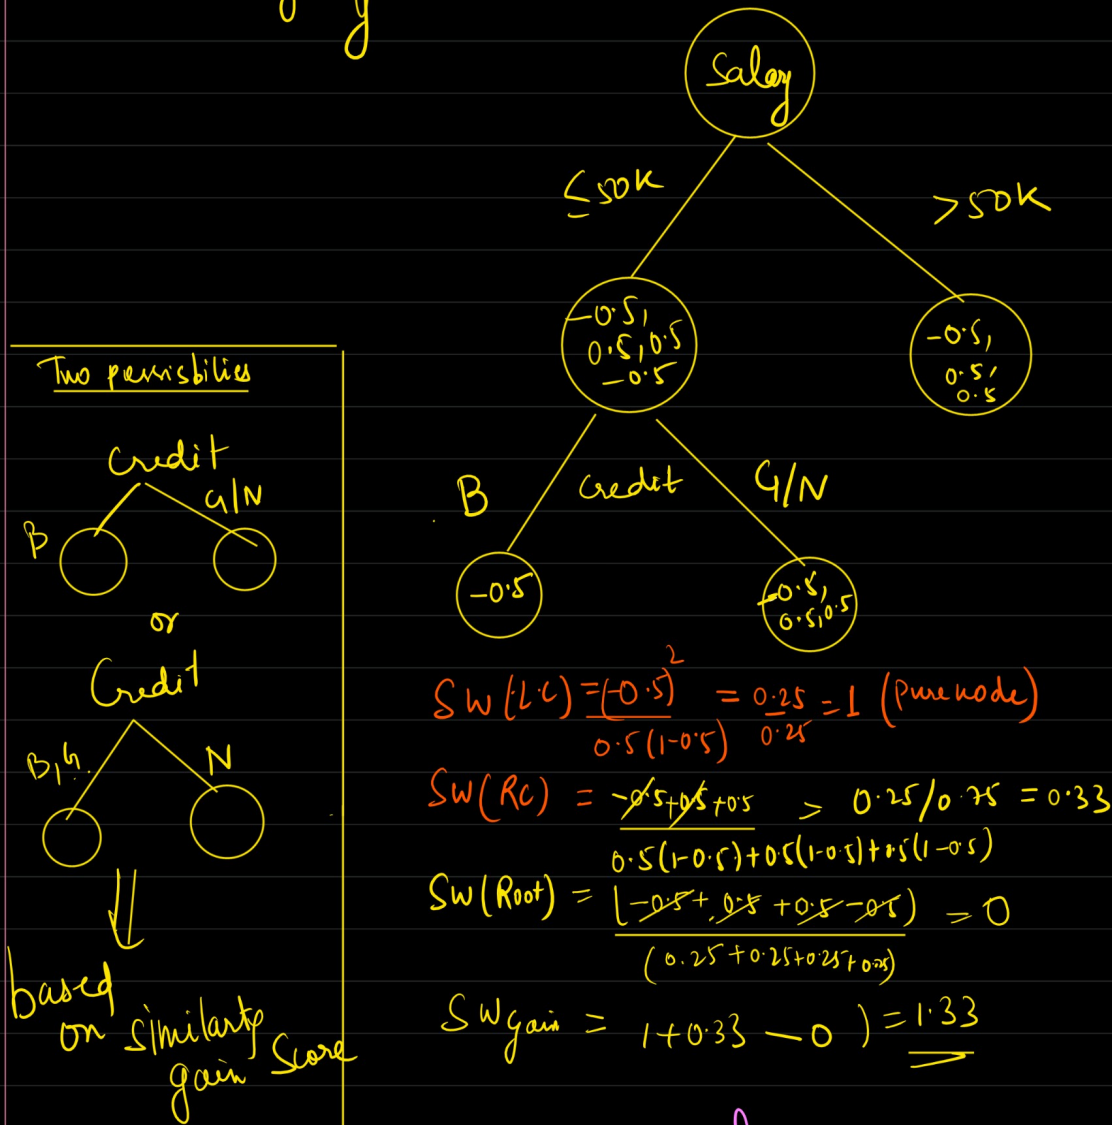 y
Salary
≤50K
>50K
-0.5,
0.5,0.5
-0.5
-0.5,
0.5,
0.5
Two
Credit
B
G/N
or
Credit
B,G.
N
based
on similarty
gain Score
B
Credit
G/N
-0.5
-0.5,
0.5,0.5
SW(L.C) = (-0.5)² / 0.5(1-0.5) = 0.25/0.25 = 1 (Pure node)
SW(RC) = -0.5+0.5+0.5 / 0.5(1-0.5)+0.5(1-0.5)+0.5(1-0.5) = 0.25/0.75 = 0.33
SW(Root) = (-0.5+0.5+0.5-0.5) / (0.25+0.25+0.25+0.25) = 0
SW gain = 1+0.33-0) = 1.33